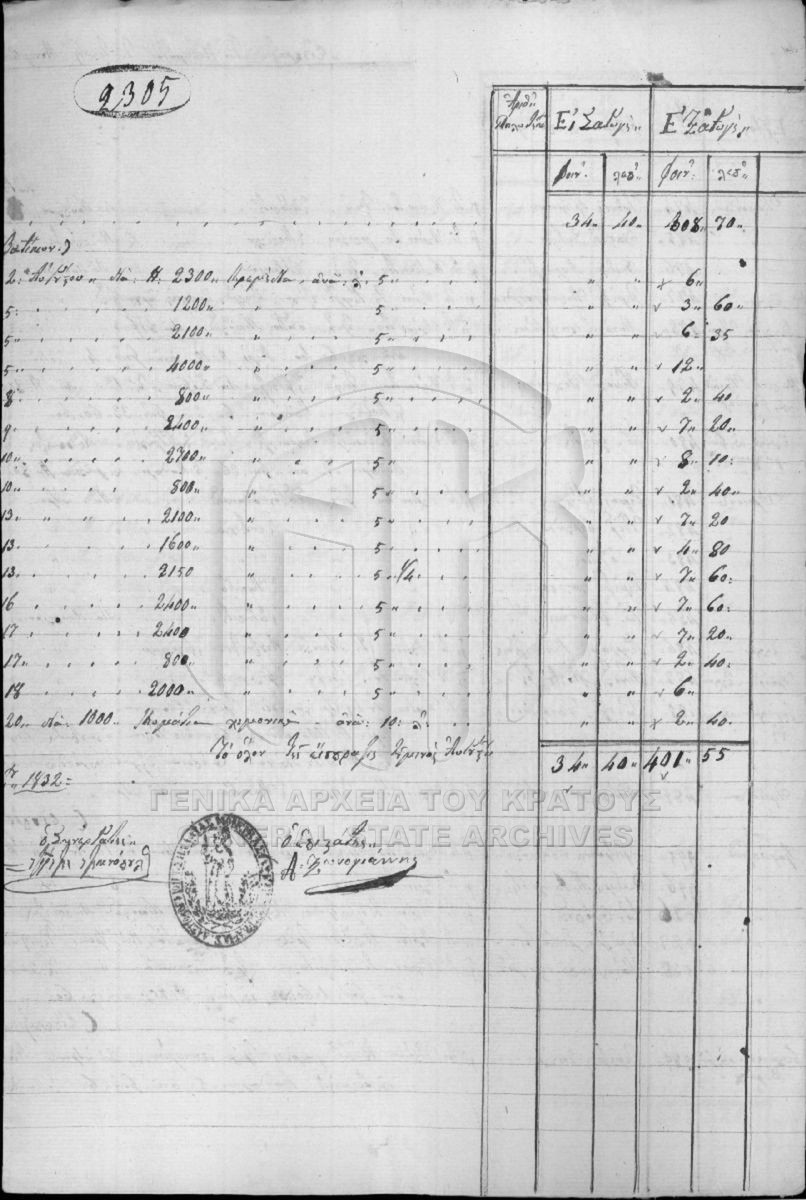 2305
Ἀριθ:
Εἰσαγωγὴ Ἐξαγωγὴ
φοίν: λεπ: φοίν: λεπ:
34 " 40 " 308 " 70 "
2: Αὐγούστου " διὰ: Ν: 2300 " ἀνὰ: λ: 5 " " " 6 "
5: 1200 " " 5 " " " 3 " 60 "
5 " 2100 " " 5 " " " 6 : 35
5 " 4000 " " 5 " " " 12 "
8 " 800 " " 5 " " " 2 " 40
9 " 2400 " " 5 " " " 7 " 20 "
10 " 2700 " " 5 " " " 8 " 10 :
10 " 800 " " 5 " " " 2 " 40 "
13 " " " 2100 " " 5 " " " 7 " 20
13 " 1600 " " 5 " " " 4 " 80
13 " 2150 " 5 " 1/4 " " 7 " 60 :
16 2400 " " 5 " " " 7 " 60 :
17 2400 " 5 " " " 7 " 20 "
17 " 800 " " 5 " " " 2 " 40 :
18 2000 " " 5 " " " 6 "
20 " διὰ: 1000 " κομάτια ἀνὰ: 10: λ: " " 2 " 40 "
Τὸ ὅλον τῆς Αὐγούστου
34 " 40 " 401 " 55
1832 =
ΓΕΝΙΚΑ ΑΡΧΕΙΑ ΤΟΥ ΚΡΑΤΟΥΣ
GENERAL STATE ARCHIVES
ὁ ὁ Ἐπιστάτης